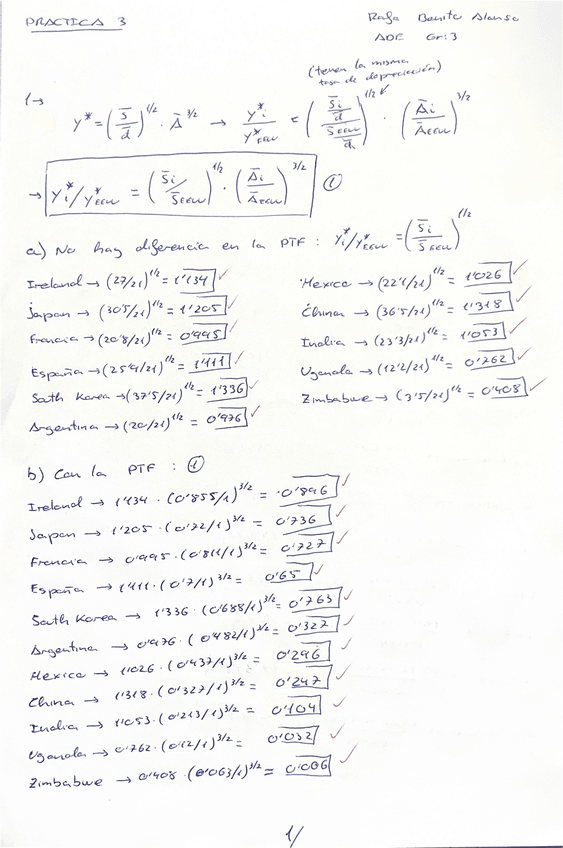 PRACTICA 3
Rafa Benito Alonso
ADE Gr: 3
(tienen la misma
tasa de depreciación)
1→ Y* = (s̄/d̄)^1/2 · Ā^3/2 → Yi*/Y*EEUU = ((s̄i/d̄)/(s̄EEUU/d̄))^1/2 · (Āi/ĀEEUU)^3/2
→ Yi*/Y*EEUU = (s̄i/s̄EEUU)^1/2 · (Āi/ĀEEUU)^3/2 ①
a) No hay diferencia en la PTF: Yi*/Y*EEUU = (s̄i/s̄EEUU)^1/2
Ireland → (27/21)^1/2 = 1'134 ✓
Japan → (30'5/21)^1/2 = 1'205 ✓
Francia → (20'8/21)^1/2 = 0'995 ✓
España → (25'9/21)^1/2 = 1'111 ✓
South Korea → (37'5/21)^1/2 = 1'336 ✓
Argentina → (20/21)^1/2 = 0'976 ✓
Mexico → (22'1/21)^1/2 = 1'026 ✓
China → (36'5/21)^1/2 = 1'318 ✓
India → (23'3/21)^1/2 = 1'053 ✓
Uganda → (12'2/21)^1/2 = 0'762 ✓
Zimbabwe → (3'5/21)^1/2 = 0'408 ✓
b) Con la PTF : ①
Ireland → 1'134 · (0'855/1)^3/2 = 0'896 ✓
Japan → 1'205 · (0'72/1)^3/2 = 0'736 ✓
Francia → 0'995 · (0'811/1)^3/2 = 0'727 ✓
España → 1'111 · (0'7/1)^3/2 = 0'65 ✓
South Korea → 1'336 · (0'688/1)^3/2 = 0'763 ✓
Argentina → 0'976 · (0'482/1)^3/2 = 0'327 ✓
Mexico → 1'026 · (0'437/1)^3/2 = 0'296 ✓
China → 1'318 · (0'327/1)^3/2 = 0'247 ✓
India → 1'053 · (0'213/1)^3/2 = 0'104 ✓
Uganda → 0'762 · (0'12/1)^3/2 = 0'032 ✓
Zimbabwe → 0'408 · (0'063/1)^3/2 = 0'006 ✓
1/